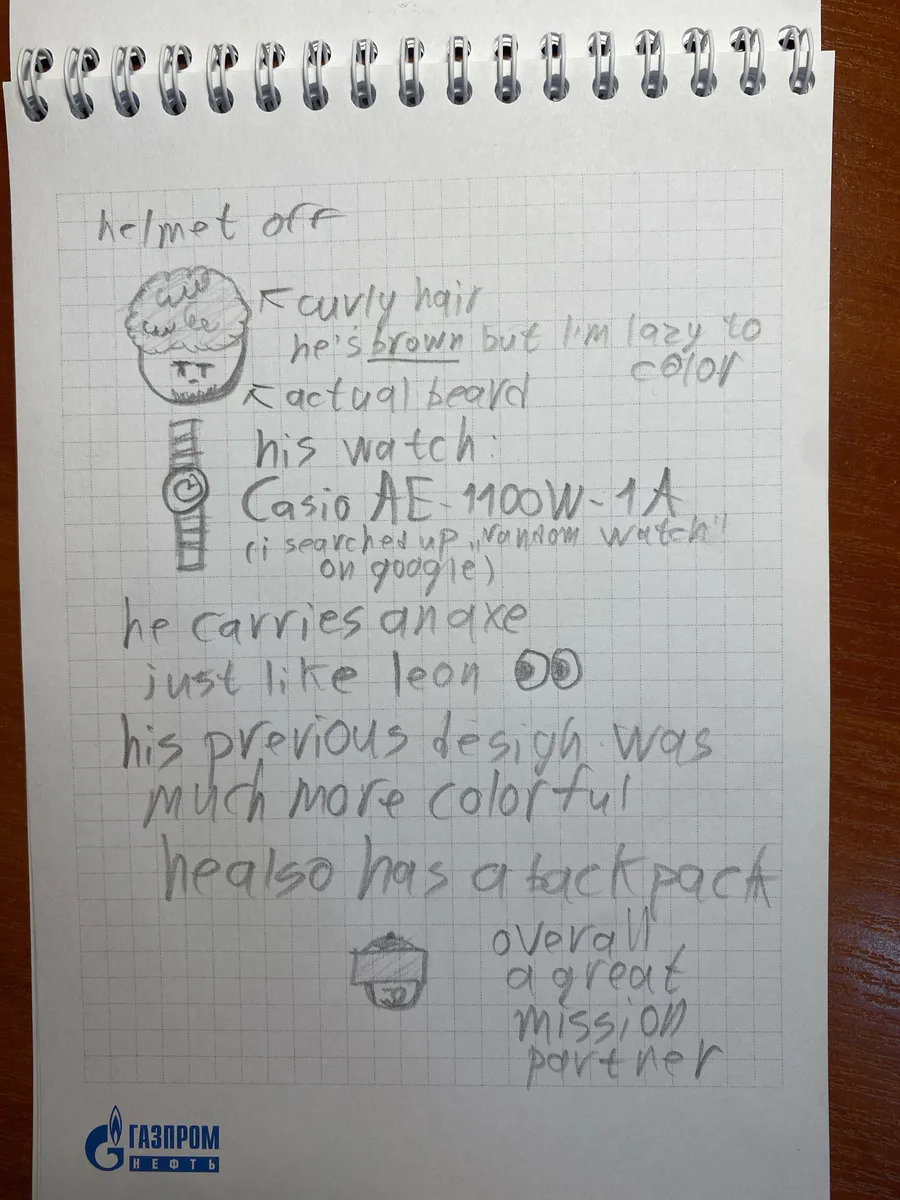 helmet off
curly hair
he's brown but I'm lazy to
color
actual beard
his watch:
Casio AE-1100W-1A
(i searched up „random watch"
on google)
he carries an axe
just like leon
his previous design was
much more colorful
he also has a backpack
overall
a great
mission
partner
ГАЗПРОМ
НЕФТЬ